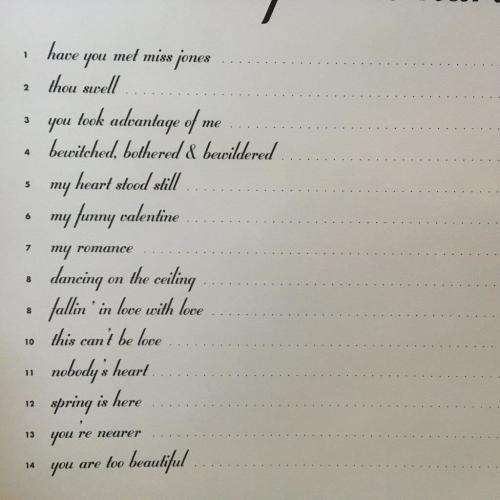 1 have you met miss jones
2 thou swell
3 you took advantage of me
4 bewitched, bothered & bewildered
5 my heart stood still
6 my funny valentine
7 my romance
8 dancing on the ceiling
8 fallin' in love with love
10 this can't be love
11 nobody's heart
12 spring is here
13 you're nearer
14 you are too beautiful